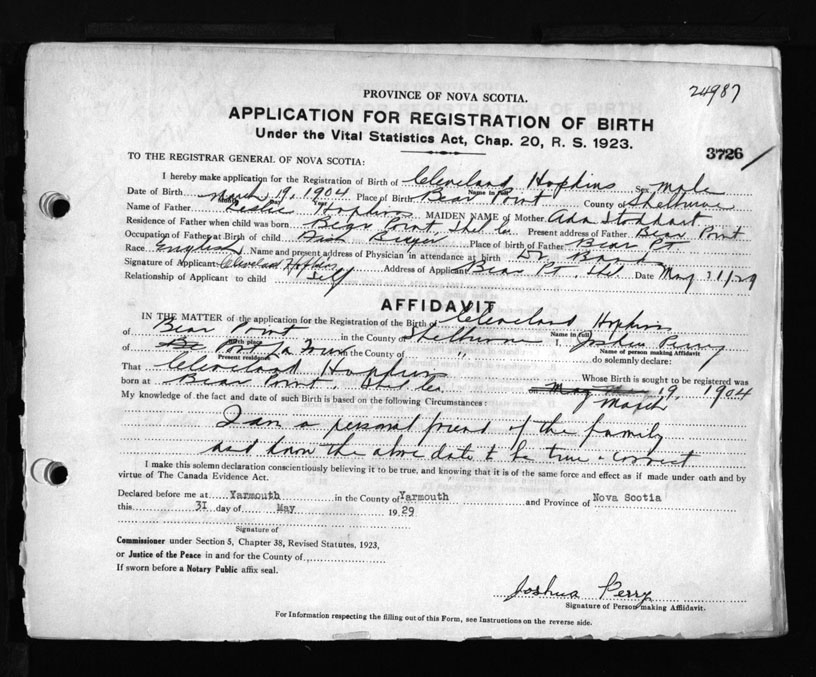 24987
PROVINCE OF NOVA SCOTIA.
APPLICATION FOR REGISTRATION OF BIRTH
Under the Vital Statistics Act, Chap. 20, R. S. 1923.
3726
TO THE REGISTRAR GENERAL OF NOVA SCOTIA:
I hereby make application for the Registration of Birth of Cleveland Hopkins Sex male
Name in Full
Date of Birth March 19, 1904 Place of Birth Bear Point County of Shelburne
Month Day Year
Name of Father Hopkins MAIDEN NAME of Mother Ada Stoddart
Residence of Father when child was born Bear Point, Shel Co. Present address of Father Bear Point
Occupation of Father at Birth of child Fish Buyer Place of birth of Father Bear Pt
Race English Name and present address of Physician in attendance at birth Dr
Signature of Applicant Cleveland Hopkins Address of Applicant Bear Pt Shel. Date May 31/29
Relationship of Applicant to child Self
AFFIDAVIT
IN THE MATTER of the application for the Registration of the Birth of Cleveland Hopkins
Name in Full
of Bear Point in the County of Shelburne I, Joshua Perry
Birth place
Name of person making Affidavit
of Port La Tour in the County of " do solemnly declare:
Present residence
That Cleveland Hopkins Whose Birth is sought to be registered was
born at Bear Point, Shel Co. May 19, 1904
March
My knowledge of the fact and date of such Birth is based on the following Circumstances:
I am a personal friend of the family
and know the above date to be true & correct
I make this solemn declaration conscientiously believing it to be true, and knowing that it is of the same force and effect as if made under oath and by
virtue of The Canada Evidence Act.
Declared before me at Yarmouth in the County of Yarmouth and Province of Nova Scotia
this 31 day of May 1929
Signature of
Commissioner under Section 5, Chapter 38, Revised Statutes, 1923,
or Justice of the Peace in and for the County of
If sworn before a Notary Public affix seal.
Joshua Perry
Signature of Person making Affidavit.
For Information respecting the filling out of this Form, see Instructions on the reverse side.